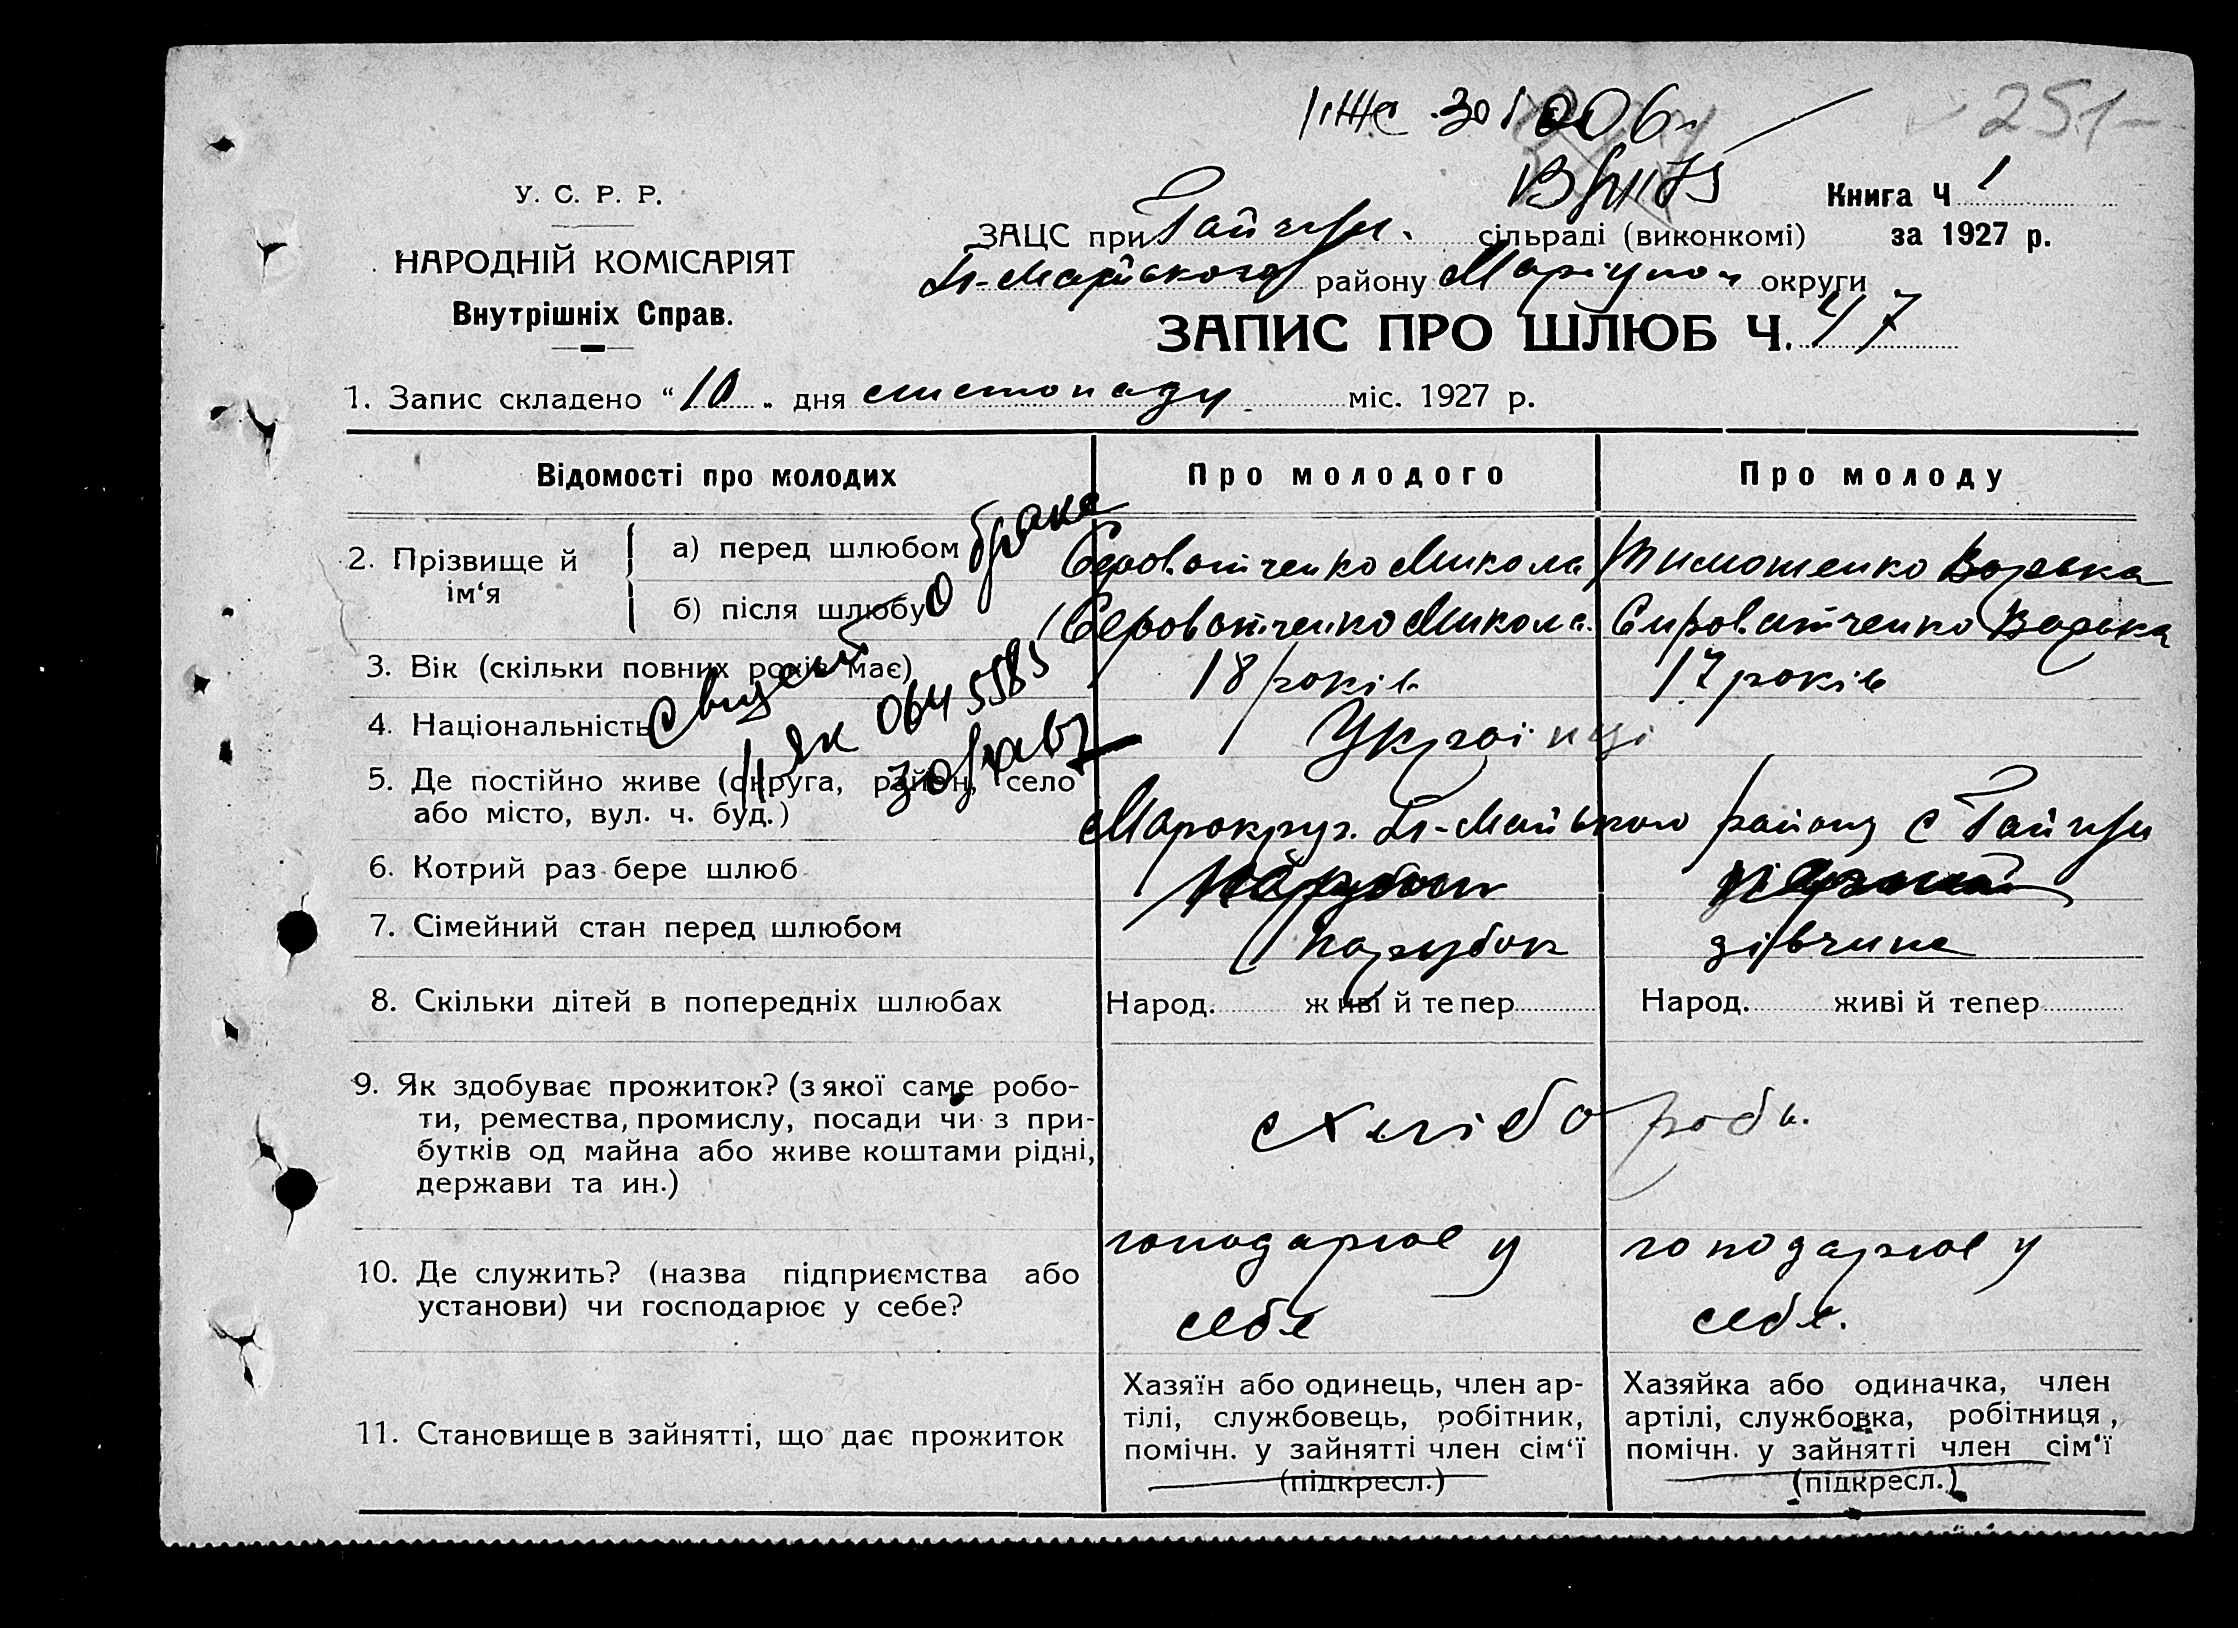 251
У. С. Р. Р.
НАРОДНІЙ КОМІСАРІЯТ
Внутрішніх Справ.
Книга Ч 1
ЗАЦС при Гайчур. сільраді (виконкомі) за 1927 р.
району Маріупол. округи
ЗАПИС ПРО ШЛЮБ Ч. 47
1. Запис складено “10„ дня листопаду міс. 1927 р.
Відомості про молодих Про молодого Про молоду
2. Прізвище й ім‘я
а) перед шлюбом Сероватченко Микола Тимошенко Варька
б) після шлюбу Сероватченко Микола. Сироватченко Варька
о браке
3. Вік (скільки повних років має) 18 років 17 років
4. Національність Українці
ЯК 0645585
5. Де постійно живе (округа, район, село
або місто, вул. ч. буд.)
району с Гайчур
6. Котрий раз бере шлюб
7. Сімейний стан перед шлюбом парубок дівчина
8. Скільки дітей в попередніх шлюбах Народ. живі й тепер Народ. живі й тепер
9. Як здобуває прожиток? (з якої саме робо-
ти, ремества, промислу, посади чи з при-
бутків од майна або живе коштами рідні,
держави та ин.)
хлібороби.
10. Де служить? (назва підприємства або
установи) чи господарює у себе?
господарює у себе
господарює у себе.
11. Становище в зайнятті, що дає прожиток
Хазяїн або одинець, член ар-
тілі, службовець, робітник,
помічн. у зайнятті член сім‘ї
(підкресл.)
Хазяйка або одиначка, член
артілі, службовка, робітниця,
помічн. у зайнятті член сім‘ї
(підкресл.)